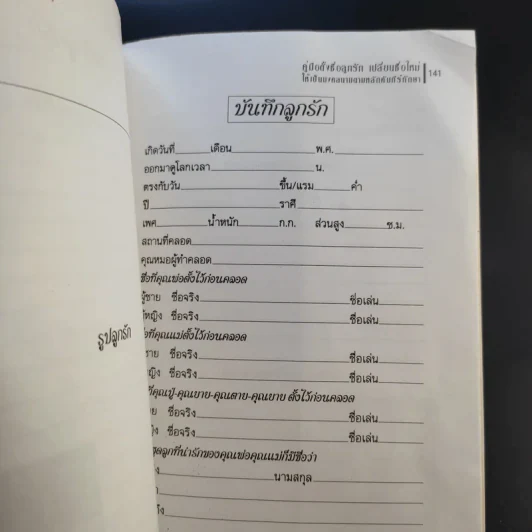 รูปลูกรัก
คู่มือตั้งชื่อลูกรัก เปลี่ยนชื่อใหม่
ให้เป็นมงคลนามตามหลักคัมภีร์ทักษา 141
บันทึกลูกรัก
เกิดวันที่ เดือน พ.ศ.
ออกมาดูโลกเวลา น.
ตรงกับวัน ขึ้น/แรม ค่ำ
ปี ราศี
เพศ น้ำหนัก ก.ก. ส่วนสูง ซ.ม.
สถานที่คลอด
คุณหมอผู้ทำคลอด
ชื่อที่คุณพ่อตั้งไว้ก่อนคลอด
ผู้ชาย ชื่อจริง ชื่อเล่น
ผู้หญิง ชื่อจริง ชื่อเล่น
ชื่อที่คุณแม่ตั้งไว้ก่อนคลอด
ชาย ชื่อจริง ชื่อเล่น
หญิง ชื่อจริง ชื่อเล่น
ที่คุณปู่-คุณยาย-คุณตาย-คุณยาย ตั้งไว้ก่อนคลอด
ชื่อจริง ชื่อเล่น
ชื่อจริง ชื่อเล่น
ลูกที่น่ารักของคุณพ่อคุณแม่ก็มีชื่อว่า
นามสกุล